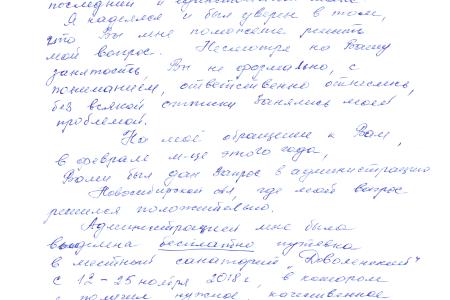 последний и единственный
Я надеялся и был уверен в том,
что Вы мне поможете решить
мой вопрос. Несмотря на Вашу
занятость, Вы не формально, с
пониманием, ответственно отнеслись,
без всякой отписки занялись моей
проблемой.
На моё обращение к Вам,
в феврале м-це этого года,
Вами был дан запрос в администрацию
Новосибирской обл, где мой вопрос
решился положительно.
Администрацией мне была
выделена бесплатно путёвка
в местный санаторий "Доволенский"
с 12-25 ноября 2018г, в котором
я получил нужное, качественное